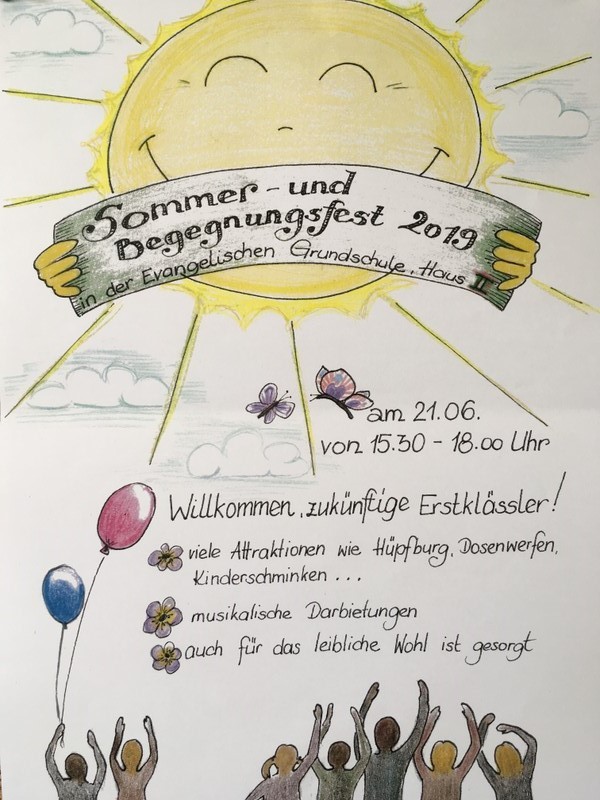 Sommer- und
Begegnungsfest 2019
in der Evangelischen Grundschule, Haus II
am 21.06.
von 15.30 - 18.00 Uhr
Willkommen, zukünftige Erstklässler!
viele Attraktionen wie Hüpfburg, Dosenwerfen,
Kinderschminken ...
musikalische Darbietungen
auch für das leibliche Wohl ist gesorgt